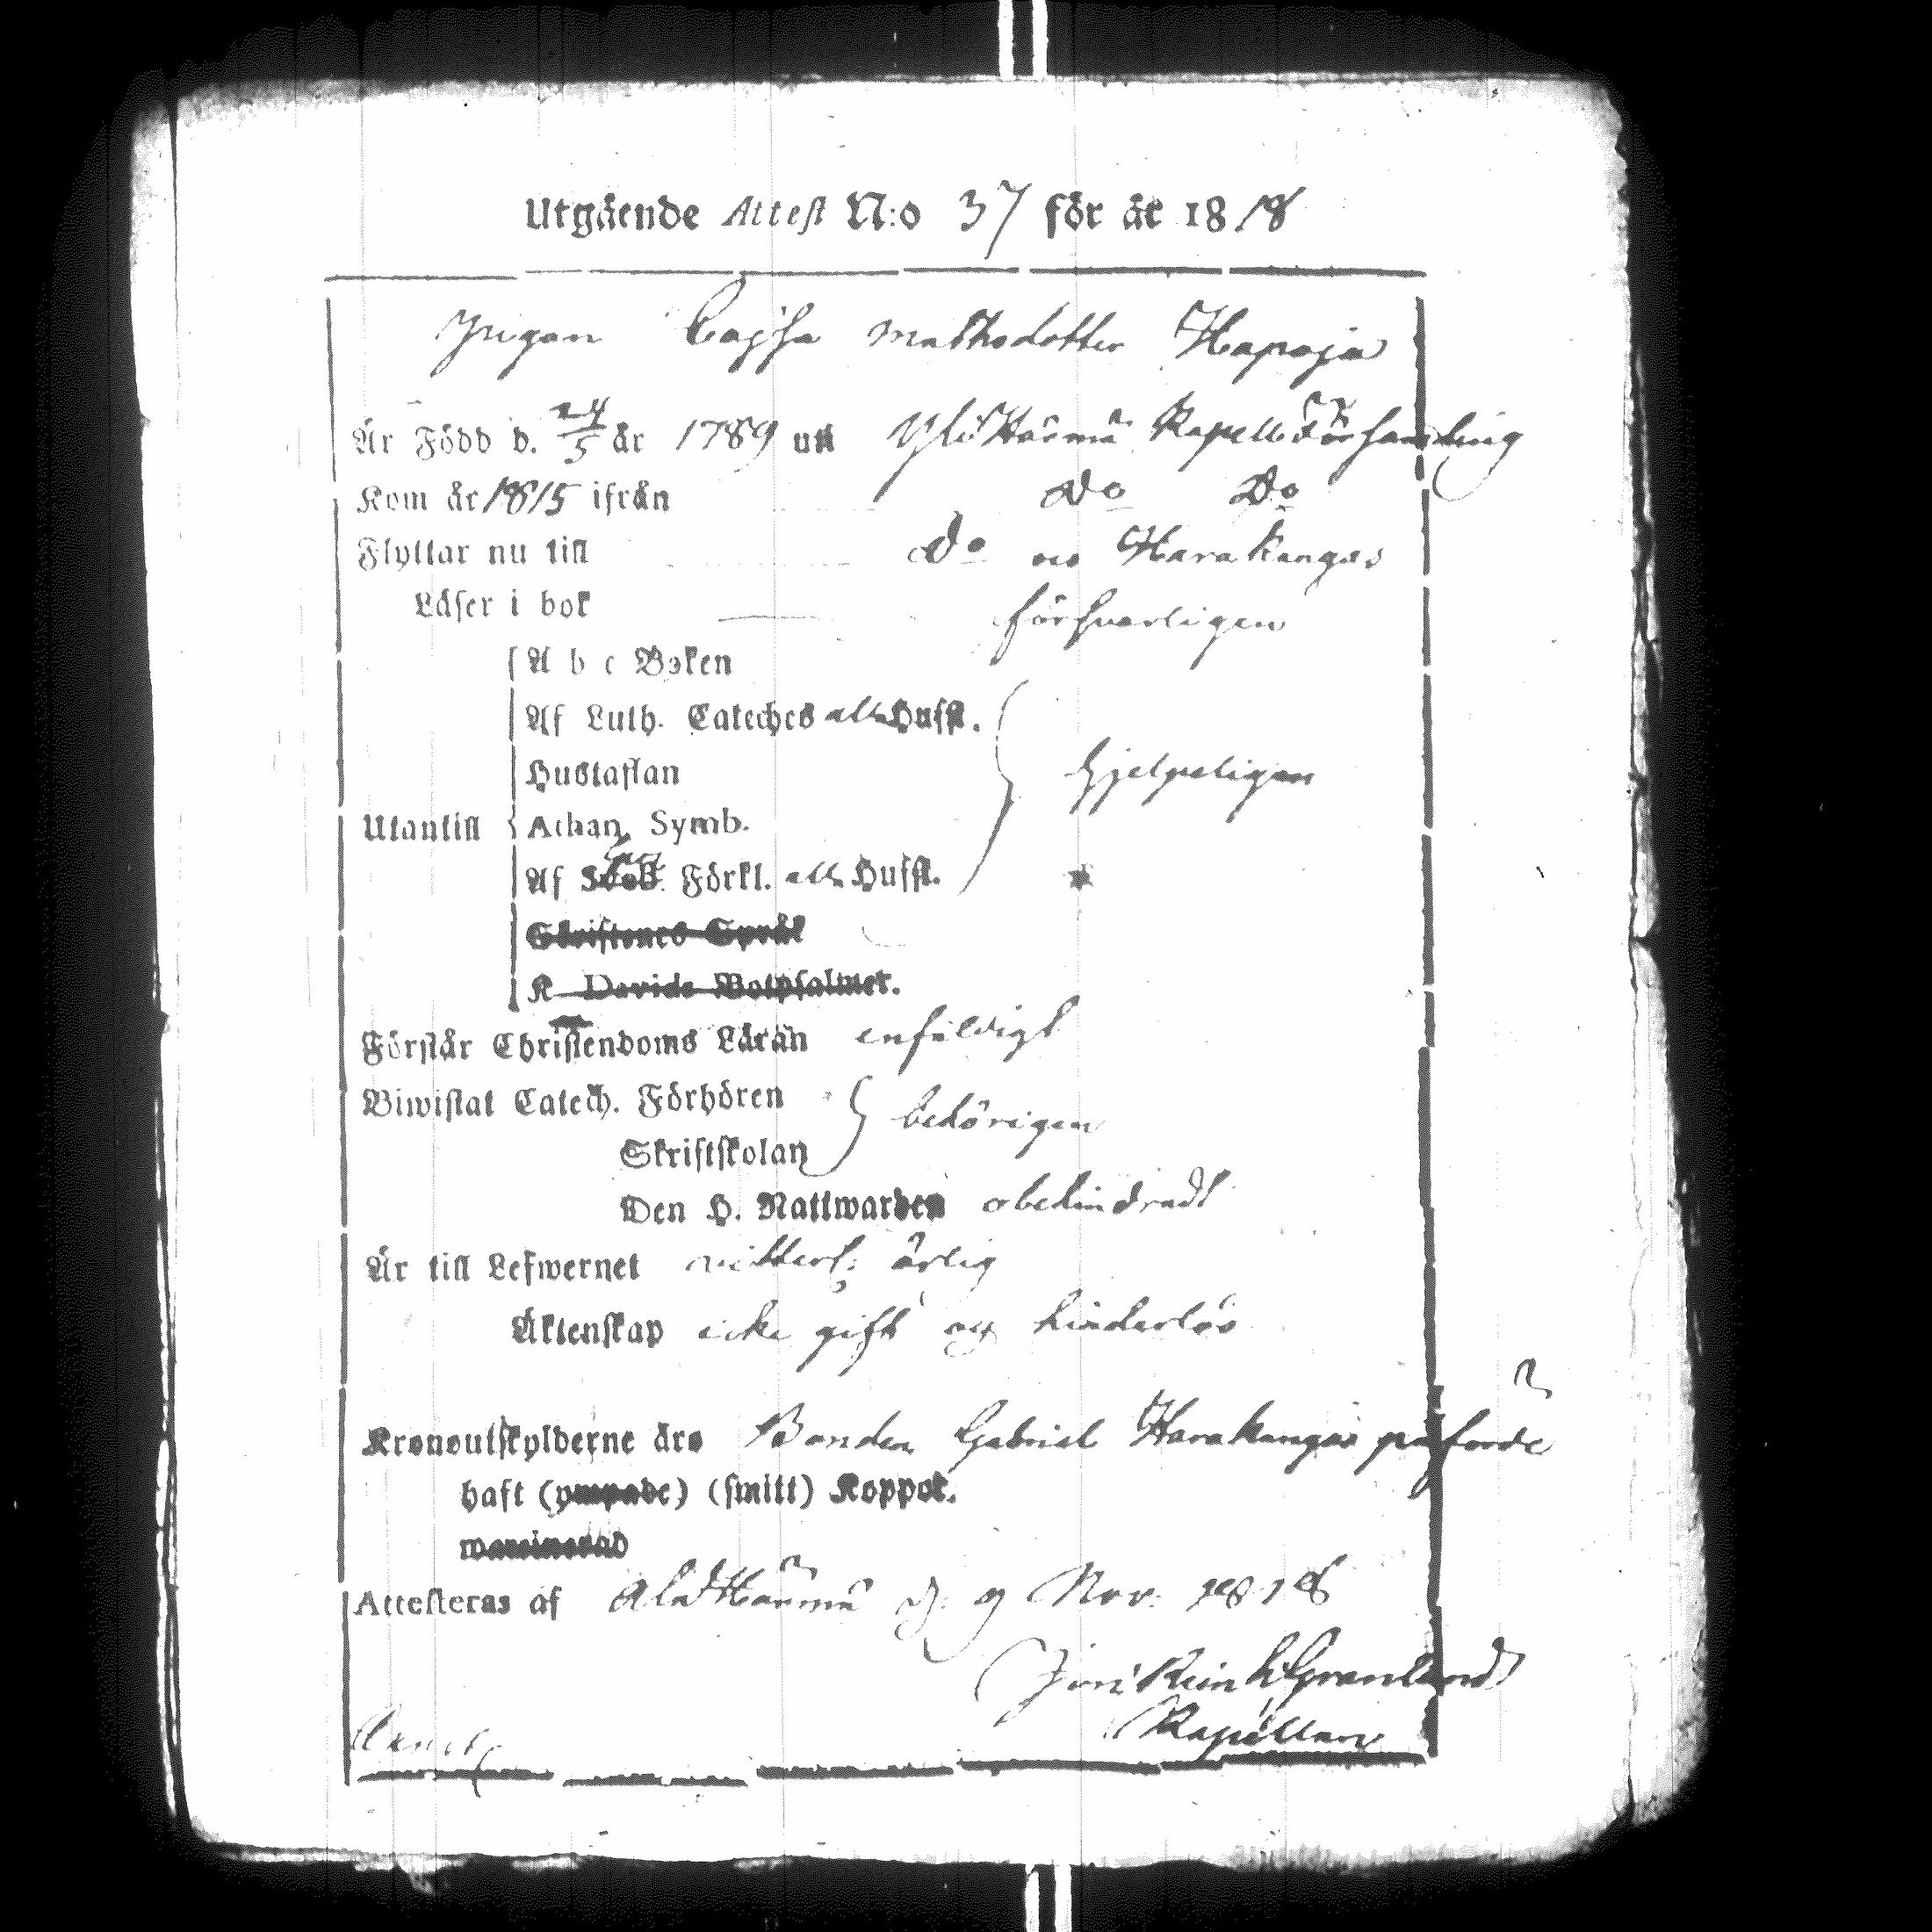 Utgående Attest N:o 37 för år 1818
Pigan Cajsa Mathsdotter Hapoja
Är Född d. 24/5 år 1789 uti Ylihärmä Kapells Församling
Kom år 1815 ifrån Do Do
Flyttar nu till Do o Harakangas
Läser i bok försvarligen
A b c Boken
Af Luth. Cateches alla Husst.
Hustaflan hjelpeligen
Utantill Athan. Symb.
Af Förkl. alla Husst.
Skriftenes Språk
K Davids Botpsalmer.
Förstår Christendoms Läran enfäldigt
Biwistat Catech. Förhören behörigen
Skriftskolan
Den H. Nattwarden obehindradt
Är till Lefwernet ärlig
Äktenskap icke gift och hinderlös
Kronoutskylderne äro Bonden Gabriel Harakangas påförde
haft (ympade) (smitt) Koppor.
Attesteras af Alahärmä d. 9 Nov. 1818
Granlund
Kapellan